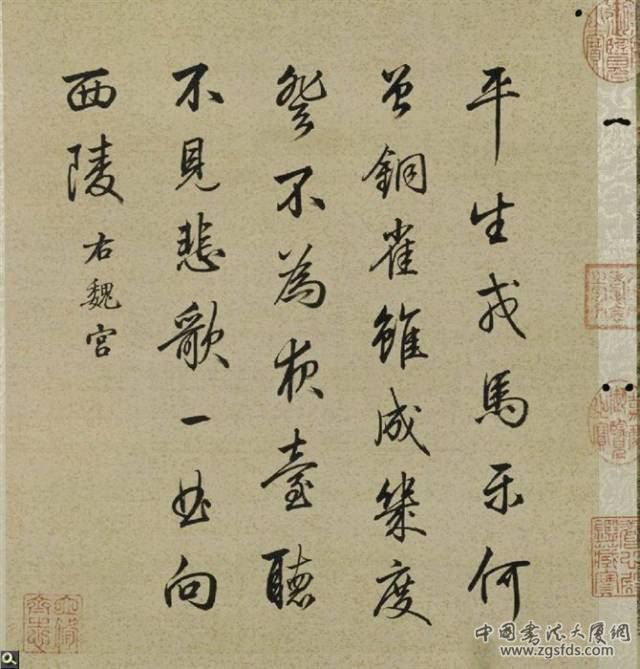 平生戎馬樂何
曾銅雀雖成幾度
登不為夜臺聽
不見悲歌一曲向
西陵 右魏宮
中國書法大廈網
www.zgsfds.com